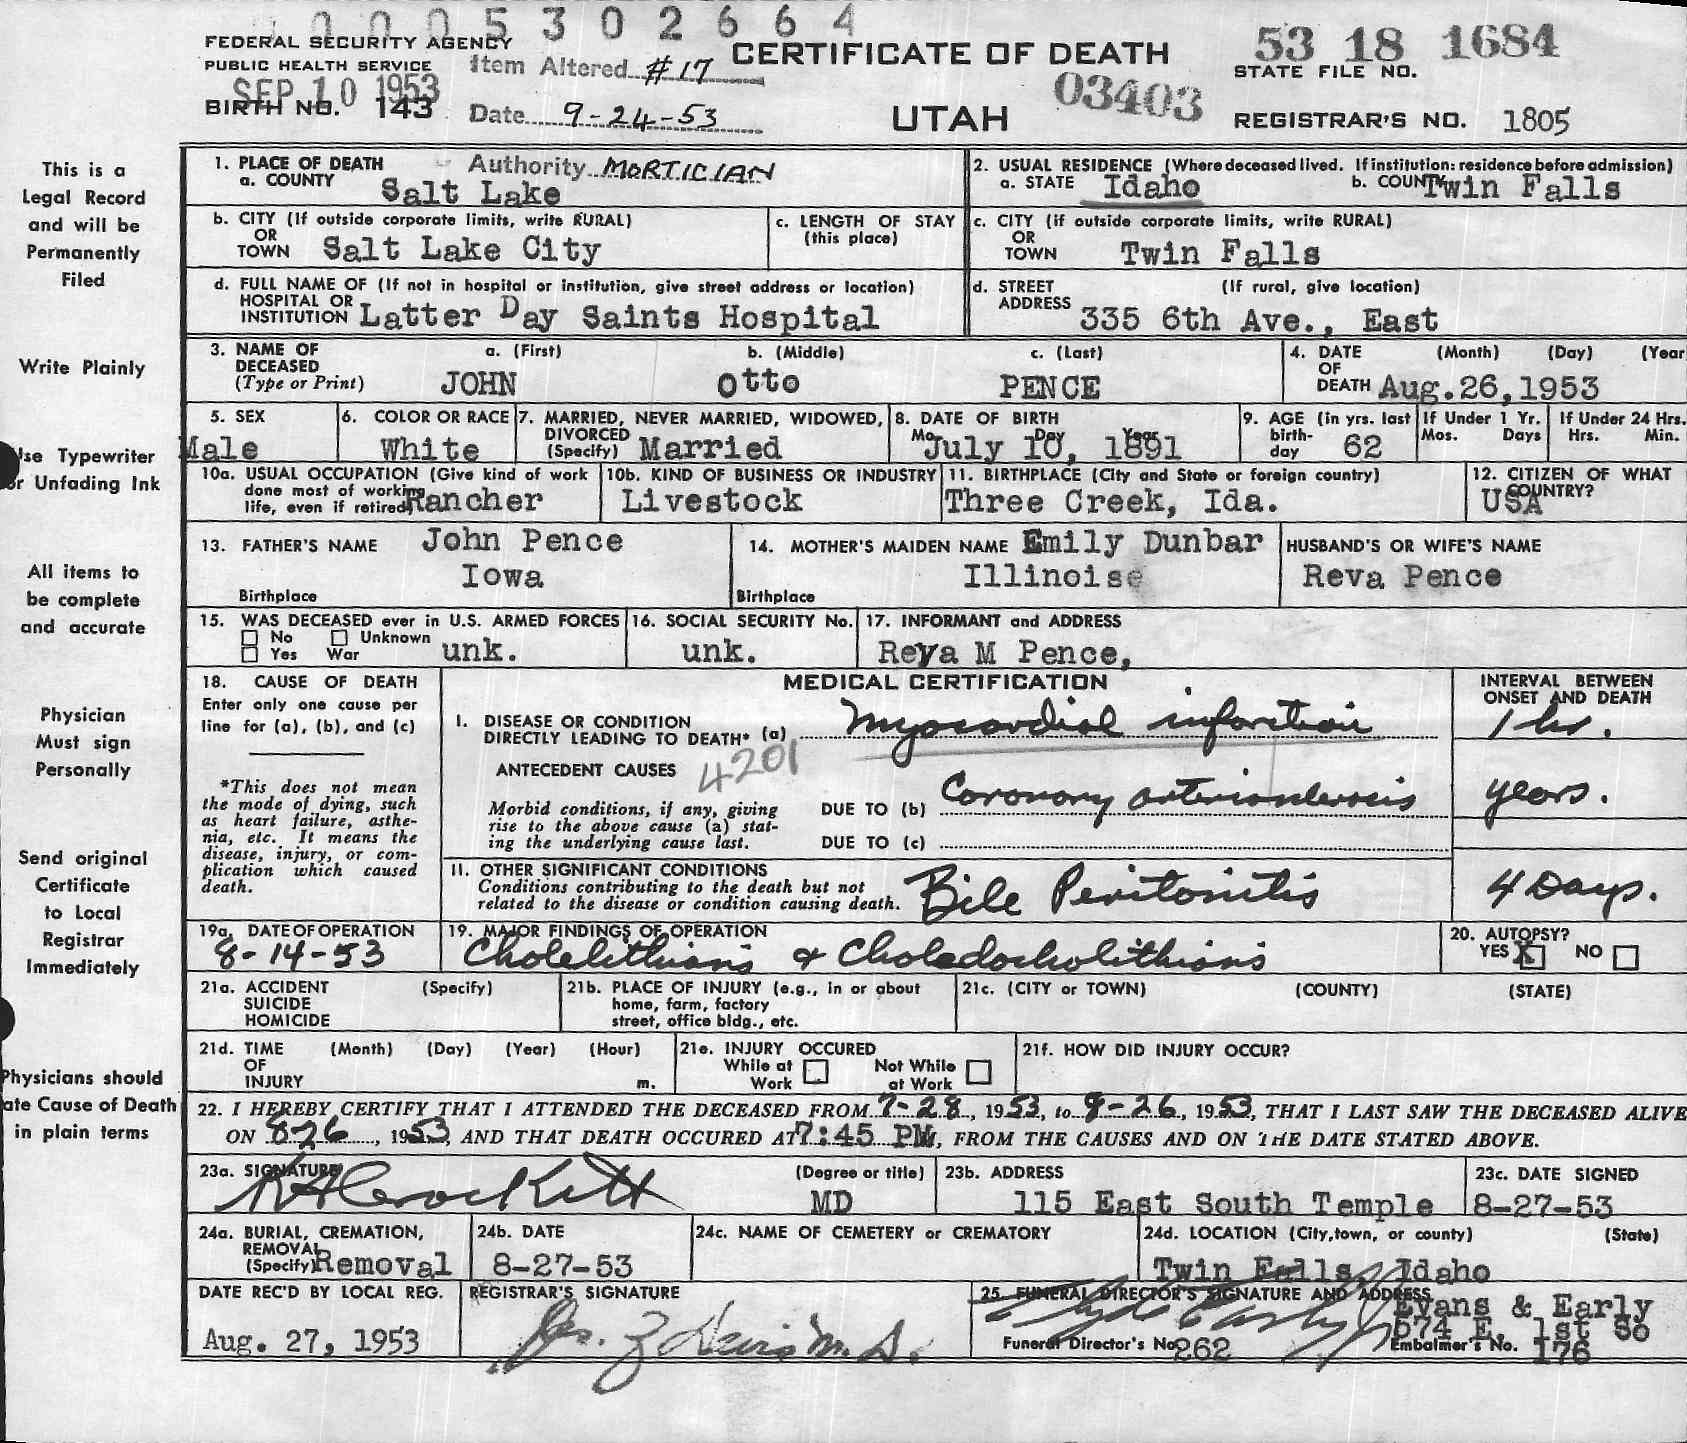 0005302664
FEDERAL SECURITY AGENCY
PUBLIC HEALTH SERVICE
SEP 10 1953
BIRTH NO. 143
Item Altered #17
Date 9-24-53
Authority MORTICIAN
CERTIFICATE OF DEATH
UTAH
03403
53 18 1684
STATE FILE NO.
REGISTRAR'S NO. 1805
This is a
Legal Record
and will be
Permanently
Filed
Write Plainly
Use Typewriter
or Unfading Ink
All items to
be complete
and accurate
Physician
Must sign
Personally
Send original
Certificate
to Local
Registrar
Immediately
Physicians should
ate Cause of Death
in plain terms
1. PLACE OF DEATH
a. COUNTY Salt Lake
2. USUAL RESIDENCE (Where deceased lived. If institution: residence before admission)
a. STATE Idaho b. COUNTY Twin Falls
b. CITY (If outside corporate limits, write RURAL)
OR
TOWN Salt Lake City
c. LENGTH OF STAY
(this place)
c. CITY (if outside corporate limits, write RURAL)
OR
TOWN Twin Falls
d. FULL NAME OF (If not in hospital or institution, give street address or location)
HOSPITAL OR
INSTITUTION Latter Day Saints Hospital
d. STREET (If rural, give location)
ADDRESS 335 6th Ave., East
3. NAME OF DECEASED
(Type or Print)
a. (First) JOHN
b. (Middle) Otto
c. (Last) PENCE
4. DATE OF DEATH (Month) (Day) (Year
Aug.26,1953
5. SEX Male
6. COLOR OR RACE White
7. MARRIED, NEVER MARRIED, WIDOWED,
DIVORCED
(Specify) Married
8. DATE OF BIRTH
Mo. Day Year
July 10, 1891
9. AGE (in yrs. last
birth-
day 62
If Under 1 Yr.
Mos. Days
If Under 24 Hrs.
Hrs. Min.
10a. USUAL OCCUPATION (Give kind of work
done most of working
life, even if retired) Rancher
10b. KIND OF BUSINESS OR INDUSTRY
Livestock
11. BIRTHPLACE (City and State or foreign country)
Three Creek, Ida.
12. CITIZEN OF WHAT
COUNTRY?
USA
13. FATHER'S NAME John Pence
Birthplace Iowa
14. MOTHER'S MAIDEN NAME Emily Dunbar
Birthplace Illinoise
HUSBAND'S OR WIFE'S NAME
Reva Pence
15. WAS DECEASED ever in U.S. ARMED FORCES
No Unknown
Yes War unk.
16. SOCIAL SECURITY No.
unk.
17. INFORMANT and ADDRESS
Reva M Pence,
18. CAUSE OF DEATH
Enter only one cause per
line for (a), (b), and (c)
*This does not mean
the mode of dying, such
as heart failure, asthe-
nia, etc. It means the
disease, injury, or com-
plication which caused
death.
MEDICAL CERTIFICATION
INTERVAL BETWEEN
ONSET AND DEATH
I. DISEASE OR CONDITION
DIRECTLY LEADING TO DEATH* (a) Myocardial infarction 1 hr.
4201
ANTECEDENT CAUSES
Morbid conditions, if any, giving
rise to the above cause (a) stat-
ing the underlying cause last.
DUE TO (b) Coronary arteriosclerosis years.
DUE TO (c)
II. OTHER SIGNIFICANT CONDITIONS
Conditions contributing to the death but not
related to the disease or condition causing death.
Bile Peritonitis 4 Days.
19a. DATE OF OPERATION
8-14-53
19. MAJOR FINDINGS OF OPERATION
Cholelithiasis & Choledocholithiasis
20. AUTOPSY?
YES X NO
21a. ACCIDENT (Specify)
SUICIDE
HOMICIDE
21b. PLACE OF INJURY (e.g., in or about
home, farm, factory
street, office bldg., etc.
21c. (CITY or TOWN) (COUNTY) (STATE)
21d. TIME (Month) (Day) (Year) (Hour)
OF
INJURY m.
21e. INJURY OCCURED
While at Work Not While at Work
21f. HOW DID INJURY OCCUR?
22. I HEREBY CERTIFY THAT I ATTENDED THE DECEASED FROM 7-28, 1953, to 8-26, 1953, THAT I LAST SAW THE DECEASED ALIVE
ON 8-26, 1953, AND THAT DEATH OCCURED AT 7:45 PM, FROM THE CAUSES AND ON THE DATE STATED ABOVE.
23a. SIGNATURE (Degree or title)
R H Crockett MD
23b. ADDRESS
115 East South Temple
23c. DATE SIGNED
8-27-53
24a. BURIAL, CREMATION,
REMOVAL
(Specify) Removal
24b. DATE
8-27-53
24c. NAME OF CEMETERY or CREMATORY
24d. LOCATION (City, town, or county) (State)
Twin Falls, Idaho
DATE REC'D BY LOCAL REG.
Aug. 27, 1953
REGISTRAR'S SIGNATURE
M.D.
25. FUNERAL DIRECTOR'S SIGNATURE AND ADDRESS
Evans & Early
574 E. 1st So
Funeral Director's No. 262
Embalmer's No. 176